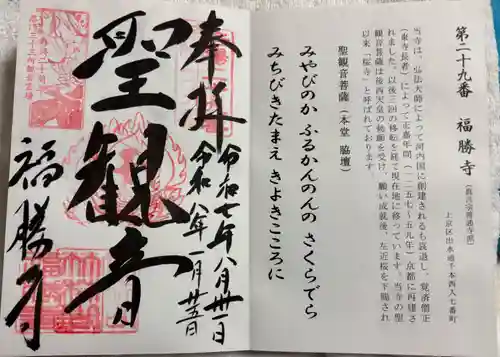 第二十九番　福勝寺
(真言宗善通寺派)
上京区出水通千本西入七番町
当寺は、弘法大師によって河内国に創建されるも衰退し、覚済僧正
(東寺長者)によって正嘉年間(一二五七〜五九年)京都に再建さ
れました。以後三回の移転を経て現在地に移っています。当寺の聖
観音菩薩は後西天皇の勅願を受け、願い成就後、左近桜を下賜され
以来「桜寺」と呼ばれております。
聖観音菩薩(本堂　脇壇)
みやびのか　ふるかんのんの　さくらでら
みちびきたまえ　きよきこころに
奉拝
令和七年八月卅一日
令和八年一月廿五日
聖観音
福勝寺